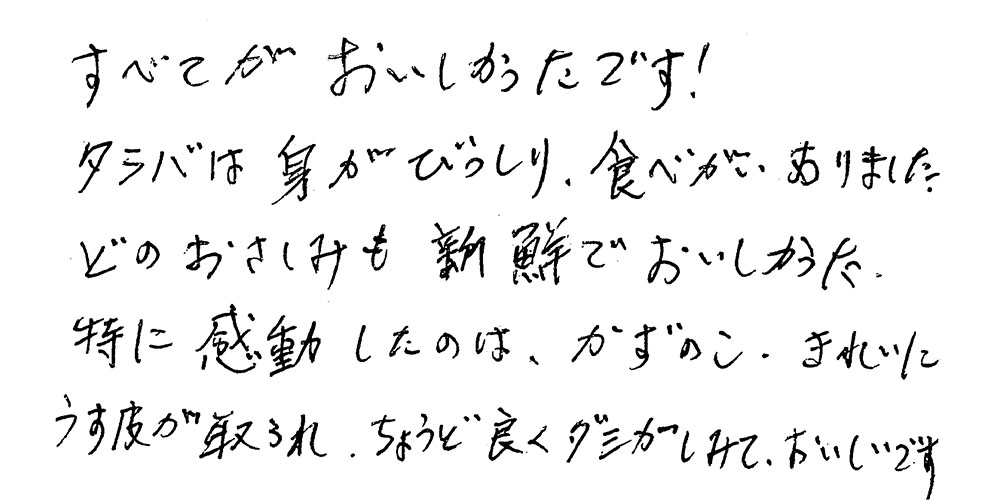 すべてが おいしかったです!
タラバは 身がびっしり、食べがい ありました.
どのおさしみも 新鮮で おいしかった.
特に 感動 したのは、かずのこ. きれいに
うす皮が 取られ. ちょうど 良く ダシがしみて、おいしいです